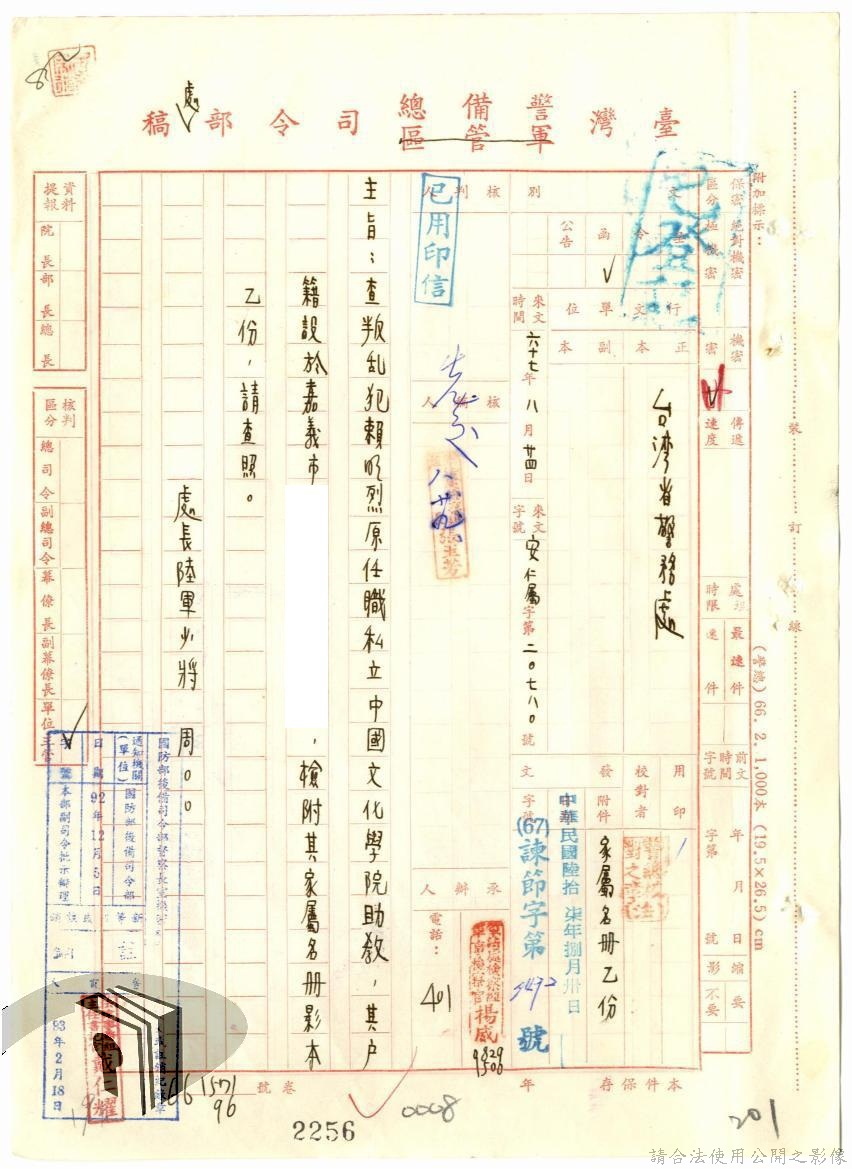 臺灣警備總司令部處稿
軍管區
附加標示：
保密區分
絕對機密
極機密
機密
密
傳遞速度
處理時限
最速件
速件
前文時間字號
年 月 日
字第 號
縮影
要
不要
文別
令
函
公告
行文單位
正本
副本
台湾省警務處
用印
校對者
發
附件
家屬名冊乙份
文
字號
中華民國陸拾柒年捌月卅日
(67)諫節字第5492號
來文時間
六十七年八月廿四日
來文字號
安仁屬字第二〇七八〇號
核判人
已用印信
核稿人
承辦人
楊威
電話：401
主旨：查叛乱犯賴明烈原任職私立中國文化學院助教，其戶
籍設於嘉義市　，檢附其家屬名冊影本
乙份，請查照。
處長陸軍少將 周〇〇
資料提報
院長
部長
總長
核判區分
總司令
副總司令
幕僚長
副幕僚長
單位主管
通知機關(單位)
國防部後備司令部
日期
92年12月5日
本部副司令批示辦理
93年2月18日
戴仁耀
本件保存 年
卷號
1571
96
裝訂線
(警總)66. 2. 1,000本 (19.5×26.5)cm
2256
0008
201
請合法使用公開之影像